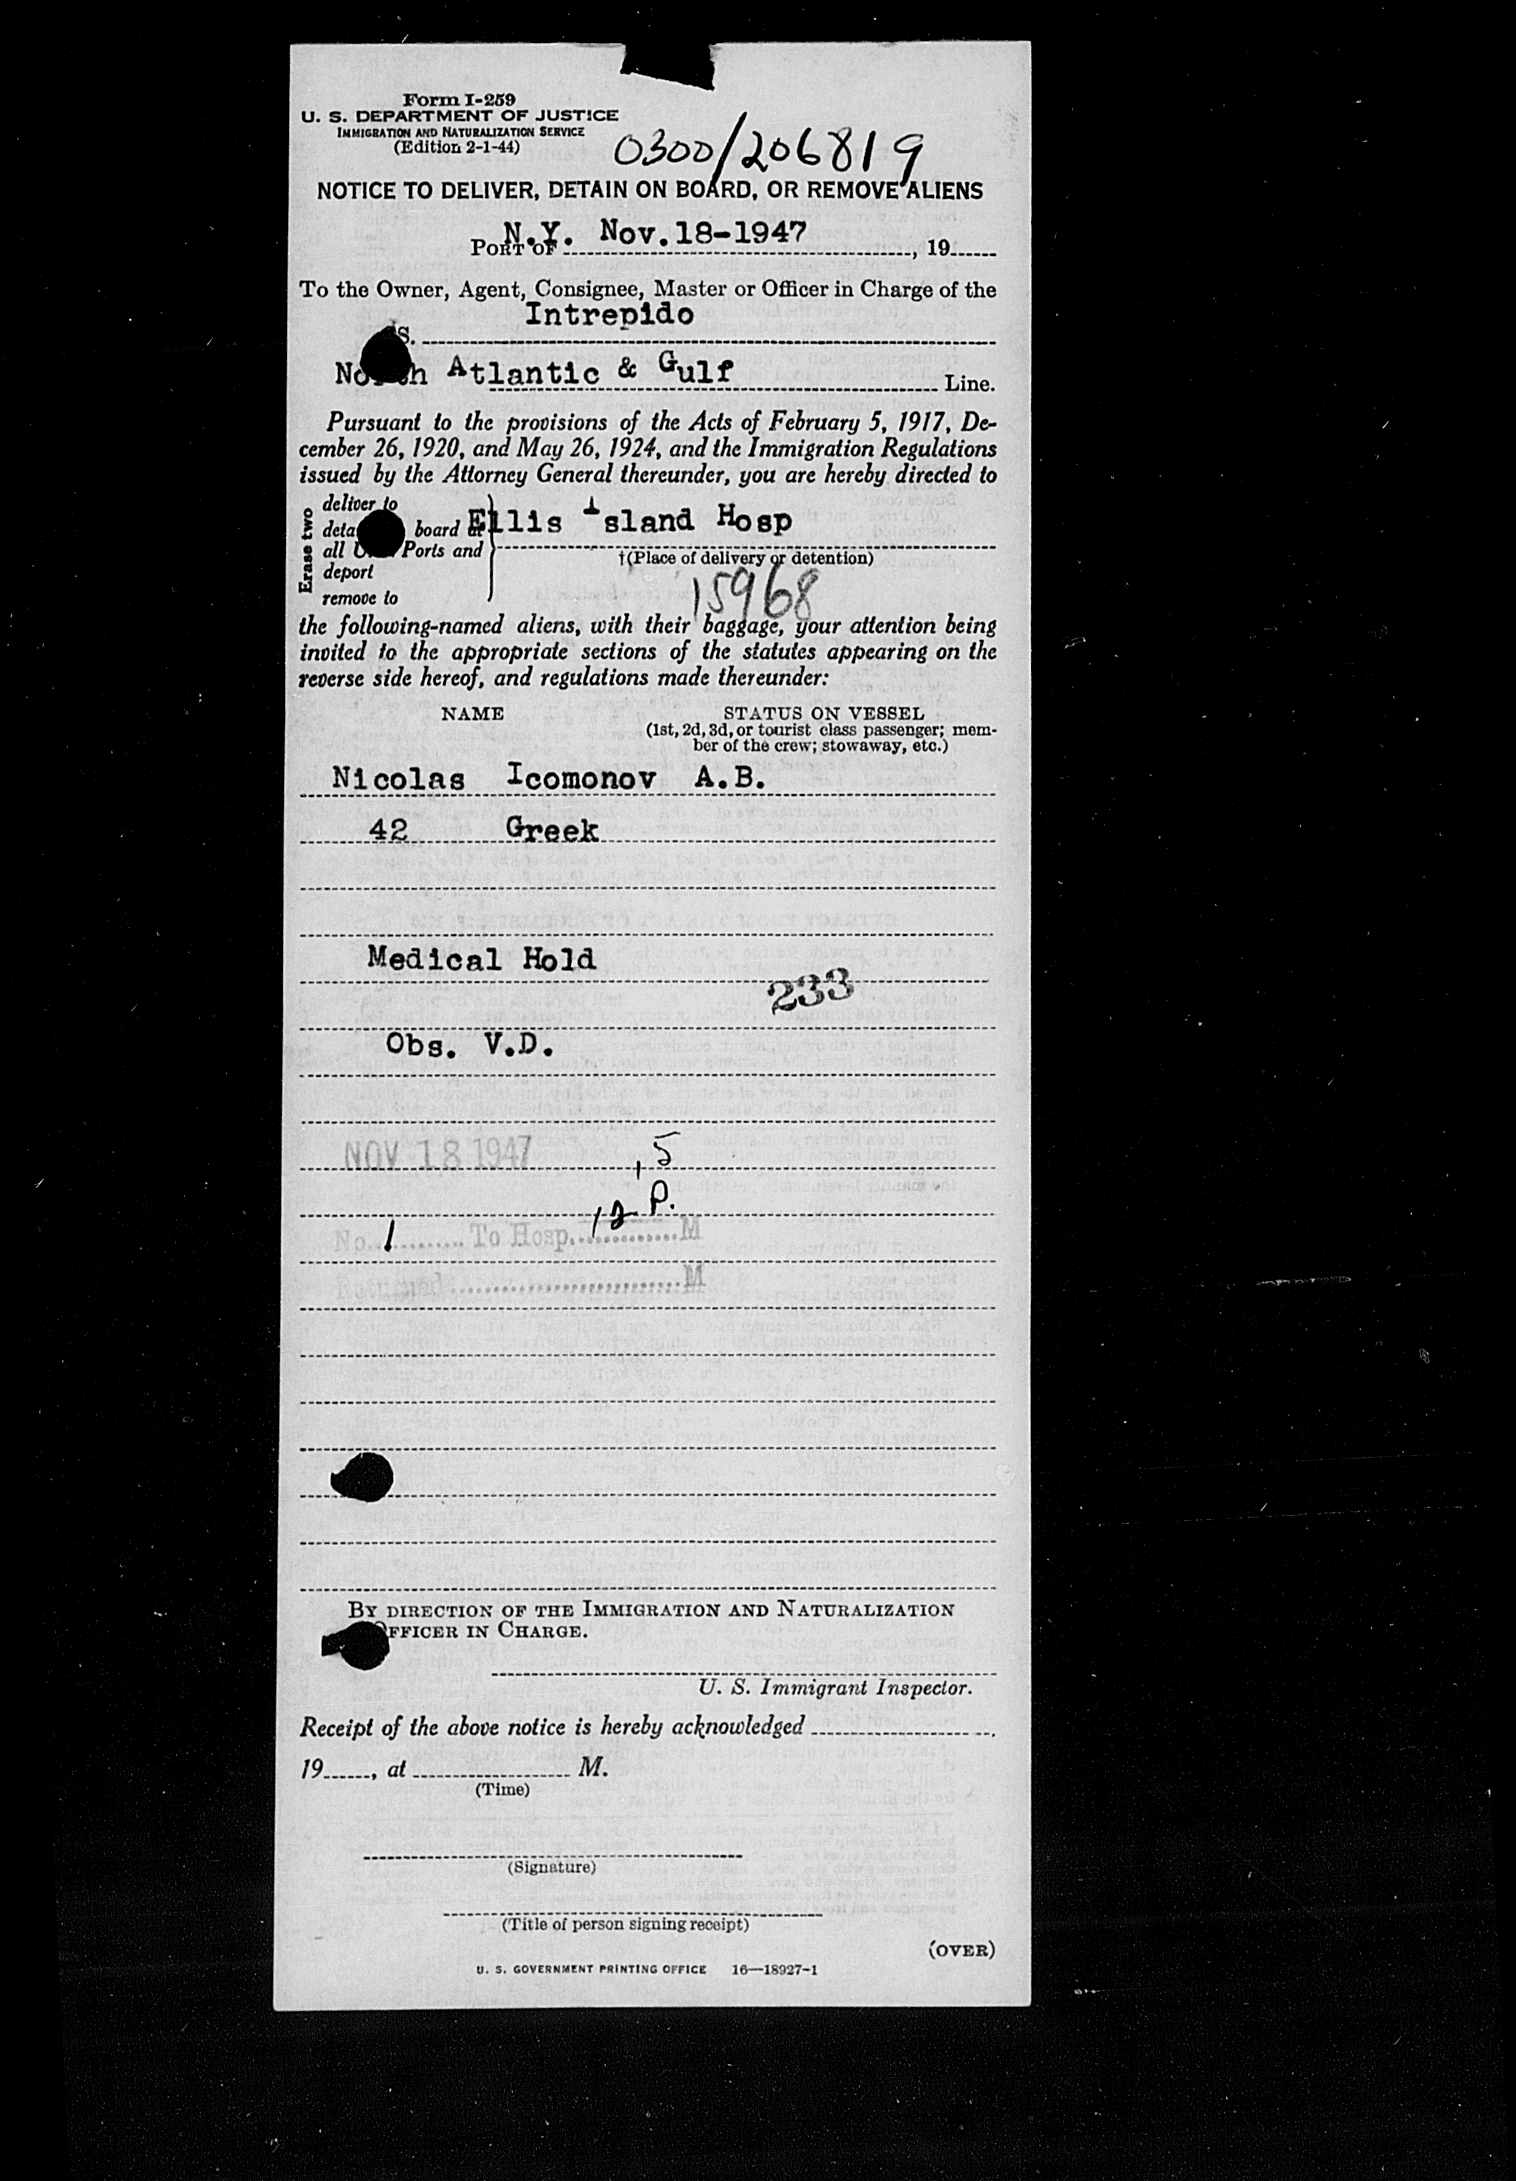 Form I-259
U. S. DEPARTMENT OF JUSTICE
IMMIGRATION AND NATURALIZATION SERVICE
(Edition 2-1-44)
0300/206819
NOTICE TO DELIVER, DETAIN ON BOARD, OR REMOVE ALIENS
PORT OF N.Y. Nov.18-1947, 19
To the Owner, Agent, Consignee, Master or Officer in Charge of the
Intrepido
S.
North Atlantic & Gulf Line.
Pursuant to the provisions of the Acts of February 5, 1917, De-
cember 26, 1920, and May 26, 1924, and the Immigration Regulations
issued by the Attorney General thereunder, you are hereby directed to
Erase two
deliver to
board at Ellis Island Hosp
all Ports and
†(Place of delivery or detention)
deport
15968
remove to
the following-named aliens, with their baggage, your attention being
invited to the appropriate sections of the statutes appearing on the
reverse side hereof, and regulations made thereunder:
NAME STATUS ON VESSEL
(1st, 2d, 3d, or tourist class passenger; mem-
ber of the crew; stowaway, etc.)
Nicolas Icomonov A.B.
42 Greek
Medical Hold
233
Obs. V.D.
NOV 18 1947
15
12 P.
No. 1 To Hosp. M
Returned M
BY DIRECTION OF THE IMMIGRATION AND NATURALIZATION
OFFICER IN CHARGE.
U. S. Immigrant Inspector.
Receipt of the above notice is hereby acknowledged
19, at M.
(Time)
(Signature)
(Title of person signing receipt)
(OVER)
U. S. GOVERNMENT PRINTING OFFICE 16—18927-1